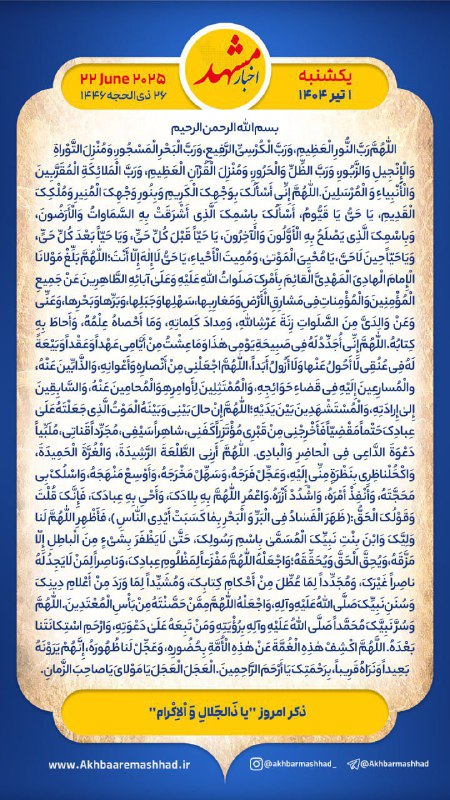 اخبار مشهد
یکشنبه
۱ تیر ۱۴۰۴
۲۰۲۵ June ۲۲
۲۶ ذی‌الحجه ۱۴۴۶
بسم الله الرحمن الرحیم
اللّٰهُمَّ رَبَّ النُّورِ الْعَظِیمِ، وَرَبَّ الْکُرْسِیِّ الرَّفِیعِ، وَرَبَّ الْبَحْرِ الْمَسْجُورِ، وَمُنْزِلَ التَّوْراةِ
وَالْإِنْجِیلِ وَالزَّبُورِ، وَرَبَّ الظِّلِّ وَالْحَرُورِ، وَمُنْزِلَ الْقُرْآنِ الْعَظِیمِ، وَرَبَّ الْمَلائِکَةِ الْمُقَرَّبِینَ
وَالْأَنْبِیاءِ وَالْمُرْسَلِینَ. اللّٰهُمَّ إِنِّی أَسْأَلُکَ بِوَجْهِکَ الْکَرِیمِ وَبِنُورِ وَجْهِکَ الْمُنِیرِ وَمُلْکِکَ
الْقَدِیمِ، یَا حَیُّ یَا قَیُّومُ، أَسْأَلُکَ بِاسْمِکَ الَّذِی أَشْرَقَتْ بِهِ السَّمَاوَاتُ وَالْأَرَضُونَ،
وَبِاسْمِکَ الَّذِی یَصْلَحُ بِهِ الْأَوَّلُونَ وَالْآخِرُونَ، یَا حَیّاً قَبْلَ کُلِّ حَیٍّ، وَیَا حَیّاً بَعْدَ کُلِّ حَیٍّ،
وَیَا حَیّاً حِینَ لَا حَیَّ، یَا مُحْیِیَ الْمَوْتىٰ، وَمُمِیتَ الْأَحْیاءِ، یَا حَیُّ لَاإِلٰهَ إِلّا أَنْتَ؛ اللّٰهُمَّ بَلِّغْ مَوْلانَا
الْإِمامَ الْهادِیَ الْمَهْدِیَّ الْقائِمَ بِأَمْرِکَ صَلَواتُ اللّٰهِ عَلَیْهِ وَعَلَىٰ آبائِهِ الطَّاهِرِینَ عَنْ جَمِیعِ
الْمُؤْمِنِینَ وَالْمُؤْمِناتِ فِی مَشارِقِ الْأَرْضِ وَمَغارِبِها، سَهْلِها وَجَبَلِها، وَبَرِّها وَبَحْرِها، وَعَنِّی
وَعَنْ وَالِدَیَّ مِنَ الصَّلَواتِ زِنَةَ عَرْشِ اللّٰهِ، وَمِدادَ کَلِماتِهِ، وَمَا أَحْصاهُ عِلْمُهُ، وَأَحاطَ بِهِ
کِتابُهُ. اللّٰهُمَّ إِنِّی أُجَدِّدُ لَهُ فِی صَبِیحَةِ یَوْمِی هٰذَا وَمَا عِشْتُ مِنْ أَیَّامِی عَهْداً وَعَقْداً وَبَیْعَةً
لَهُ فِی عُنُقِی لَا أَحُولُ عَنْها وَلَا أَزُولُ أَبَداً. اللّٰهُمَّ اجْعَلْنِی مِنْ أَنْصارِهِ وَأَعْوانِهِ، وَالذَّابِّینَ عَنْهُ،
وَالْمُسارِعِینَ إِلَیْهِ فِی قَضاءِ حَوَائِجِهِ، وَالْمُمْتَثِلِینَ لِأَوامِرِهِ وَالْمُحامِینَ عَنْهُ، وَالسَّابِقِینَ
إِلىٰ إِرادَتِهِ، وَالْمُسْتَشْهَدِینَ بَیْنَ یَدَیْهِ؛ اللّٰهُمَّ إِنْ حالَ بَیْنِی وَبَیْنَهُ الْمَوْتُ الَّذِی جَعَلْتَهُ عَلَىٰ
عِبادِکَ حَتْماً مَقْضِیّاً فَأَخْرِجْنِی مِنْ قَبْرِی مُؤْتَزِراً کَفَنِی، شاهِراً سَیْفِی، مُجَرِّداً قَناتِی، مُلَبِّیاً
دَعْوَةَ الدَّاعِی فِی الْحاضِرِ وَالْبادِی. اللّٰهُمَّ أَرِنِی الطَّلْعَةَ الرَّشِیدَةَ، وَالْغُرَّةَ الْحَمِیدَةَ،
وَاکْحُلْ ناظِرِی بِنَظْرَةٍ مِنِّی إِلَیْهِ، وَعَجِّلْ فَرَجَهُ، وَسَهِّلْ مَخْرَجَهُ، وَأَوْسِعْ مَنْهَجَهُ، وَاسْلُکْ بِی
مَحَجَّتَهُ، وَأَنْفِذْ أَمْرَهُ، وَاشْدُدْ أَزْرَهُ. وَاعْمُرِ اللّٰهُمَّ بِهِ بِلادَکَ، وَأَحْیِ بِهِ عِبادَکَ، فَإِنَّکَ قُلْتَ
وَقَوْلُکَ الْحَقُّ: (ظَهَرَ الْفَسَادُ فِی الْبَرِّ وَ الْبَحْرِ بِمَا کَسَبَتْ أَیْدِی النَّاسِ)، فَأَظْهِرِ اللّٰهُمَّ لَنا
وَلِیَّکَ وَابْنَ بِنْتِ نَبِیِّکَ الْمُسَمَّىٰ بِاسْمِ رَسُولِکَ، حَتَّىٰ لَا یَظْفَرَ بِشَیْءٍ مِنَ الْباطِلِ إِلّا
مَزَّقَهُ، وَیُحِقَّ الْحَقَّ وَیُحَقِّقَهُ؛ وَاجْعَلْهُ اللّٰهُمَّ مَفْزَعاً لِمَظْلُومِ عِبادِکَ، وَناصِراً لِمَنْ لَایَجِدُ لَهُ
ناصِراً غَیْرَکَ، وَمُجَدِّداً لِمَا عُطِّلَ مِنْ أَحْکامِ کِتابِکَ، وَمُشَیِّداً لِمَا وَرَدَ مِنْ أَعْلامِ دِینِکَ
وَسُنَنِ نَبِیِّکَ صَلَّى اللّٰهُ عَلَیْهِ وَآلِهِ، وَاجْعَلْهُ اللّٰهُمَّ مِمَّنْ حَصَّنْتَهُ مِنْ بَأْسِ الْمُعْتَدِینَ. اللّٰهُمَّ
وَسُرَّ نَبِیَّکَ مُحَمَّداً صَلَّى اللّٰهُ عَلَیْهِ وَآلِهِ بِرُؤْیَتِهِ وَمَنْ تَبِعَهُ عَلَىٰ دَعْوَتِهِ، وَارْحَمِ اسْتِکانَتَنا
بَعْدَهُ. اللّٰهُمَّ اکْشِفْ هٰذِهِ الْغُمَّةَ عَنْ هٰذِهِ الْأُمَّةِ بِحُضُورِهِ، وَعَجِّلْ لَنا ظُهُورَهُ، إِنَّهُمْ یَرَوْنَهُ
بَعِیداً وَنَرَاهُ قَرِیباً، بِرَحْمَتِکَ یَا أَرْحَمَ الرَّاحِمِینَ. الْعَجَلَ الْعَجَلَ یَا مَوْلایَ یَا صاحِبَ الزَّمانِ.
ذکر امروز "یا ذَالجَلالِ وَ الْاِکْرام"
www.Akhbaaremashhad.ir
@akhbarmashhad_
@Akhbarmashhad